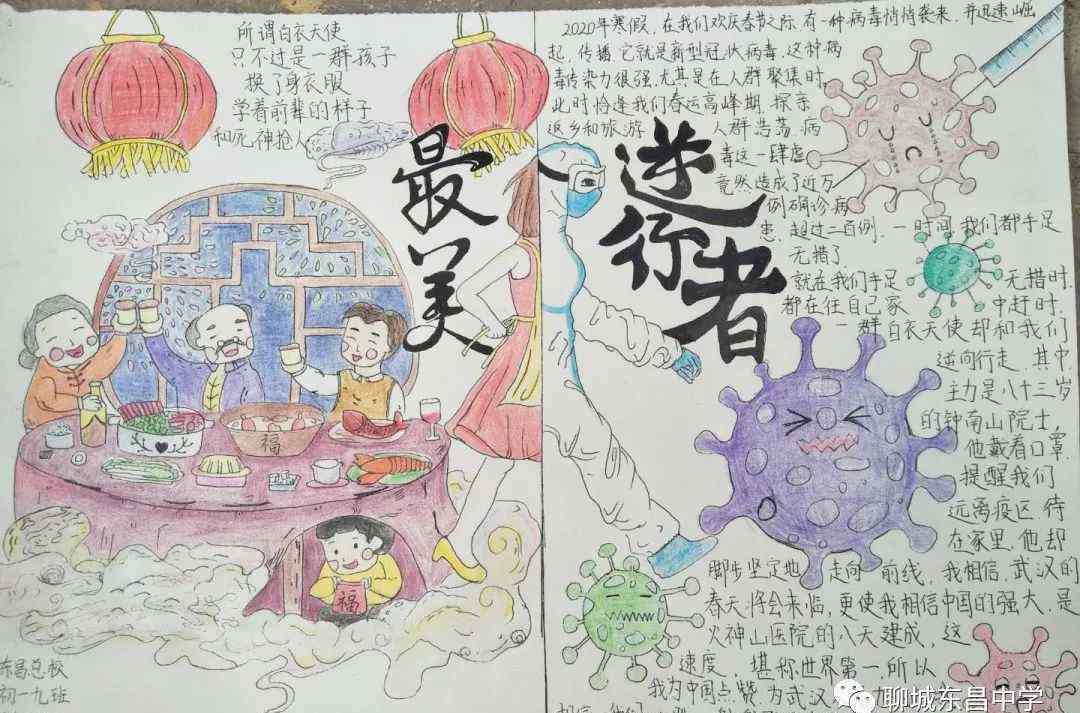 所谓白衣天使
只不过是一群孩子
换了身衣服
学着前辈的样子
和死神抢人
最美
逆行者
2020年寒假，在我们欢庆春节之际，有一种病毒悄悄袭来，并迅速崛
起，传播，它就是新型冠状病毒，这种病
毒传染力很强，尤其是在人群聚集时，
此时恰逢我们春运高峰期，探亲
返乡和旅游 人群浩荡，病
毒这一肆虐
竟然造成了近万
例确诊病
患，超过二百例，一时间，我们都手足
无措了
就在我们手足 无措时，
都在往自己家 中赶时，
一群白衣天使却和我们
逆向行走，其中
主力是八十三岁
的钟南山院士，
他戴着口罩
提醒我们
远离疫区，待
在家里，他却
脚步坚定地 走向 前线，我相信，武汉的
春天将会来临，更使我相信中国的强大，是
火神山医院的八天建成，这
速度，堪称世界第一，所以
我为中国点赞，为武汉
福
福
东昌总校
初一九班
聊城东昌中学